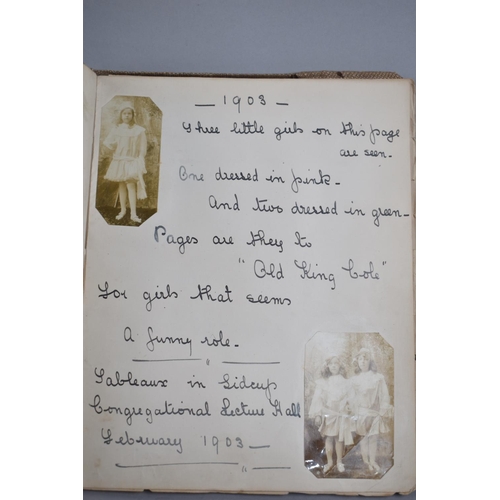 — 1903 —
Three little girls on this page
are seen.
One dressed in pink.
And two dressed in green.
Pages are they to
"Old King Cole"
For girls that seems
A funny role.
Tableaux in Sidcup
Congregational Lecture Hall
February 1903 —